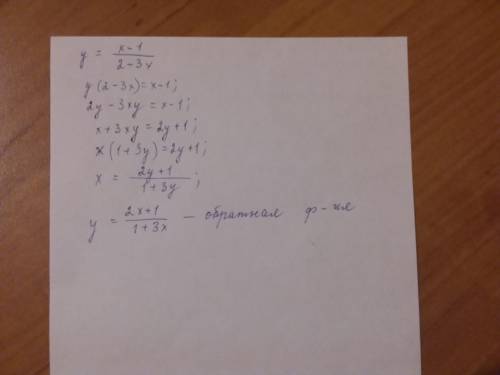 y = x-1 / 2-3x
y(2-3x)=x-1;
2y-3xy=x-1;
x+3xy=2y+1;
x(1+3y)=2y+1;
x = 2y+1 / 1+3y ;
y = 2x+1 / 1+3x - обратная ф-ия